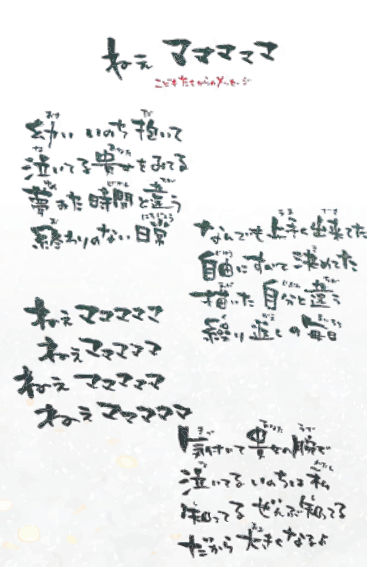 ねぇ マママママ
こどもたちからのメッセージ
幼い いのち 抱いて
泣いてる 貴女をみてる
夢みた 時間と違う
終わりのない 日常
なんでも 上手く 出来てた
自由に すべて 決めてた
描いた 自分と違う
繰り返しの毎日
ねぇ マママママ
ねぇ マママママ
ねぇ マママママ
ねぇ マママママ
気付いて 貴女の腕で
泣いてる いのちは 私
知ってる ぜんぶ知ってる
だから 大きくなるよ